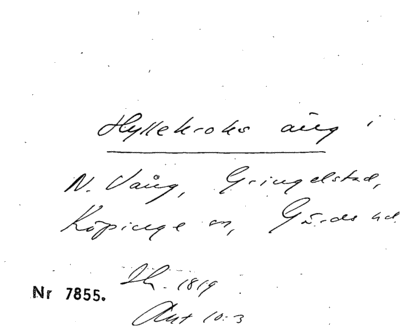 Hyllekroks äng i
N. Vång, Gringelstad,
Köpinge sn, Gärds hd.
Sk. 1819
Akt 10:3
Nr 7855.